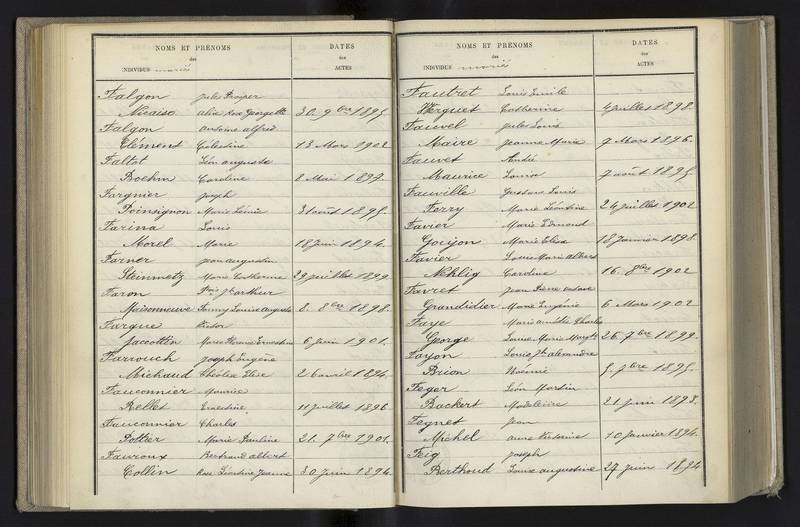 NOMS ET PRÉNOMS
des
INDIVIDUS mariés
DATES
des
ACTES
Falgon Jules Prosper
Nicaise Alix Rose Georgette 30. 9bre 1895.
Falgon Antoine Alfred
Clément Célestine 13 Mars 1902
Faltot Léon Auguste
Boehm Caroline 2 Mai 1897.
Fargnier Joseph
Poinsignon Marie 31 août 1895.
Farina Louis
Morel Marie 18 Juin 1894.
Farner Jean Augustin
Steinmetz Marie Catherine 29 juillet 1899
Faron Fois Jh Arthur
Maisonneuve Fanny Louise Augusta 8. 8bre 1898.
Fargue Victor
Jaccottin Marie Ernestine 6 juin 1901.
Farrouch Joseph Eugène
Michaud Elise 26 avril 1894.
Fauconnier Maurice
Rellet Ernestine 11 juillet 1896
Fauconnier Charles
Pottier Marie Pauline 21. 7bre 1901.
Fauroux Bertrand Albert
Collin Rose Léontine Jeanne 30 Juin 1894.
NOMS ET PRÉNOMS
des
INDIVIDUS mariés
DATES
des
ACTES
Fautret Louis Emile
Werquet Catherine 4 juillet 1898.
Fauvel Jules Louis
Maire Jeanne Marie 7 Mars 1896.
Fauvet André
Maurice Louise 7 août 1895.
Fauville Gustave Louis
Ferry Marie Léontine 24 juillet 1902
Favier Marie Edmond
Goujon Marie Elisa 18 Janvier 1898.
Favier Louis Marie Albert
Nehlig Caroline 16. 8bre 1902
Favret Jean Pierre
Grandidier Marie Eugénie 6 Mars 1902
Faye Marie Amétis Charles
George Louise Marie Margte 26. 7bre 1899.
Fayon Louis Jh Alexandre
Brion Noémie 5. 7bre 1895.
Feger Léon Martin
Backert Madeleine 21 Juin 1898.
Feynet Jean
Michel Anne Victorine 10 Janvier 1894.
Feig Joseph
Berthoud Louise Augustine 27 Juin 1894